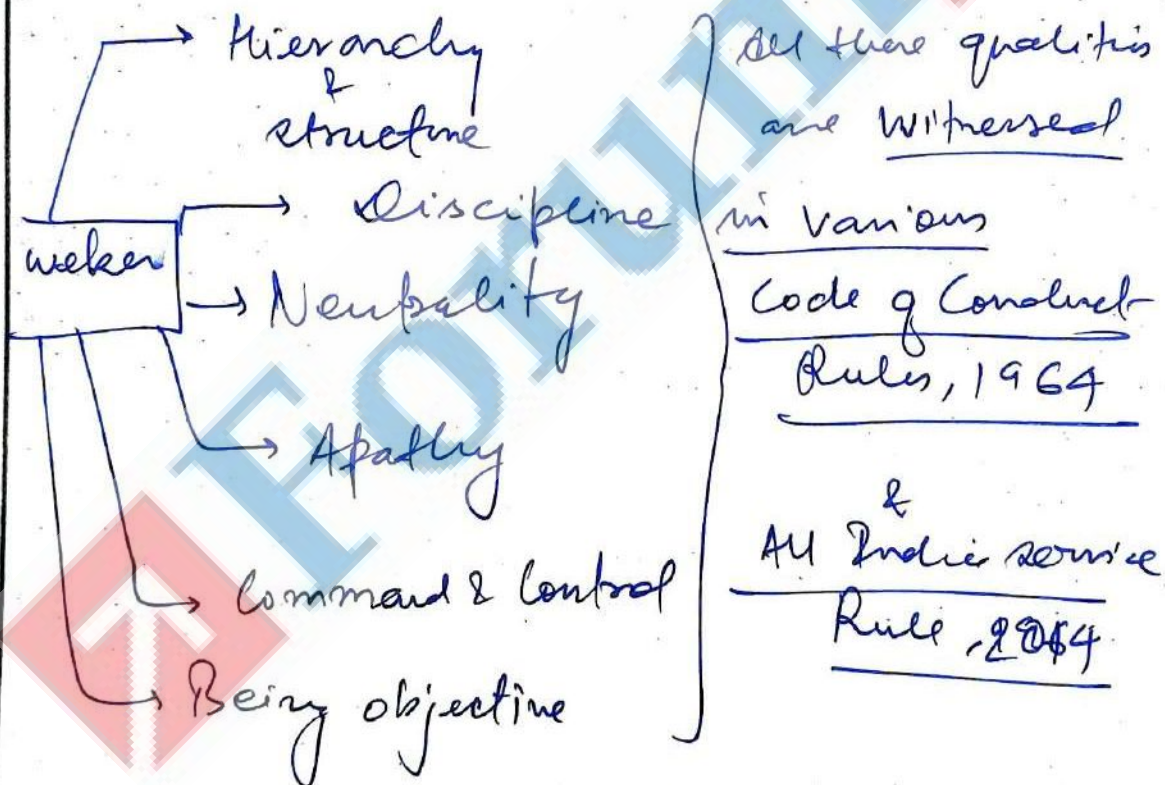 Hierarchy
&
structure
weker
Discipline
Neutrality
Apathy
Command & Control
Being objective
All these qualities
are witnessed
in various
Code of Conduct
Rules, 1964
&
All India service
Rule, 2014
Forum